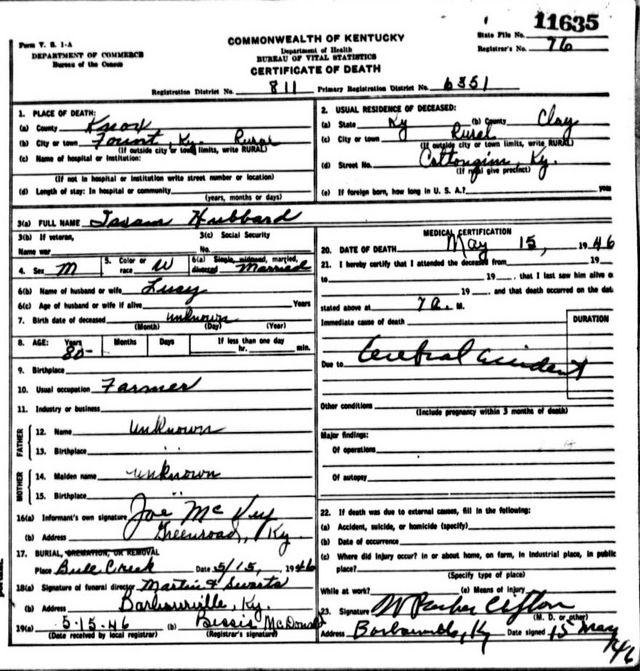 11635
Form V. S. 1-A
DEPARTMENT OF COMMERCE
Bureau of the Census
COMMONWEALTH OF KENTUCKY
Department of Health
BUREAU OF VITAL STATISTICS
CERTIFICATE OF DEATH
State File No.
Registrar's No. 76
Registration District No. 811 Primary Registration District No. 6351
1. PLACE OF DEATH:
(a) County Knox
(b) City or town Fount, Ky. Rural
(If outside city or town limits, write RURAL)
(c) Name of hospital or institution:
(If not in hospital or institution write street number or location)
(d) Length of stay: In hospital or community
(years, months or days)
2. USUAL RESIDENCE OF DECEASED:
(a) State Ky (b) County Clay
(c) City or town Rural
(If outside city or town limits, write RURAL)
(d) Street No. Cottongim Ky.
(If rural give precinct)
(e) If foreign born, how long in U. S. A.? years
3(a) FULL NAME Hubbard
3(b) If veteran,
Name war
3(c) Social Security
No.
4. Sex M
5. Color or race W
6(a) Single, widowed, married, divorced Married
6(b) Name of husband or wife Lucy
6(c) Age of husband or wife if alive Years
7. Birth date of deceased unknown
(Month) (Day) (Year)
8. AGE: Years 80- Months Days If less than one day
hr. min.
9. Birthplace
10. Usual occupation Farmer
11. Industry or business
FATHER
12. Name unknown
13. Birthplace "
MOTHER
14. Maiden name unknown
15. Birthplace "
16(a) Informant's own signature Joe McVey
(b) Address Greenroad, Ky.
17. BURIAL, CREMATION, OR REMOVAL
Place Bull Creek Date 5/15, 1946
18(a) Signature of funeral director Martin &
(b) Address Barbourville, Ky.
19(a) 5-15-46 (b) Bessie McDonald
(Date received by local registrar) (Registrar's signature)
MEDICAL CERTIFICATION
20. DATE OF DEATH May 15, 1946
21. I hereby certify that I attended the deceased from 19
to 19 , that I last saw him alive o
19 , and that death occurred on the dat
stated above at 7 a. M.
Immediate cause of death
DURATION
Due to Cerebral accident
Other conditions
(Include pregnancy within 3 months of death)
Major findings:
Of operations
Of autopsy
22. If death was due to external causes, fill in the following:
(a) Accident, suicide, or homicide (specify)
(b) Date of occurrence
(c) Where did injury occur? in or about home, on farm, in industrial place, in public
place?
(Specify type of place)
While at work? (e) Means of injury
23. Signature Clifton
(M. D. or other)
Address Barbourville, Ky Date signed 15 May